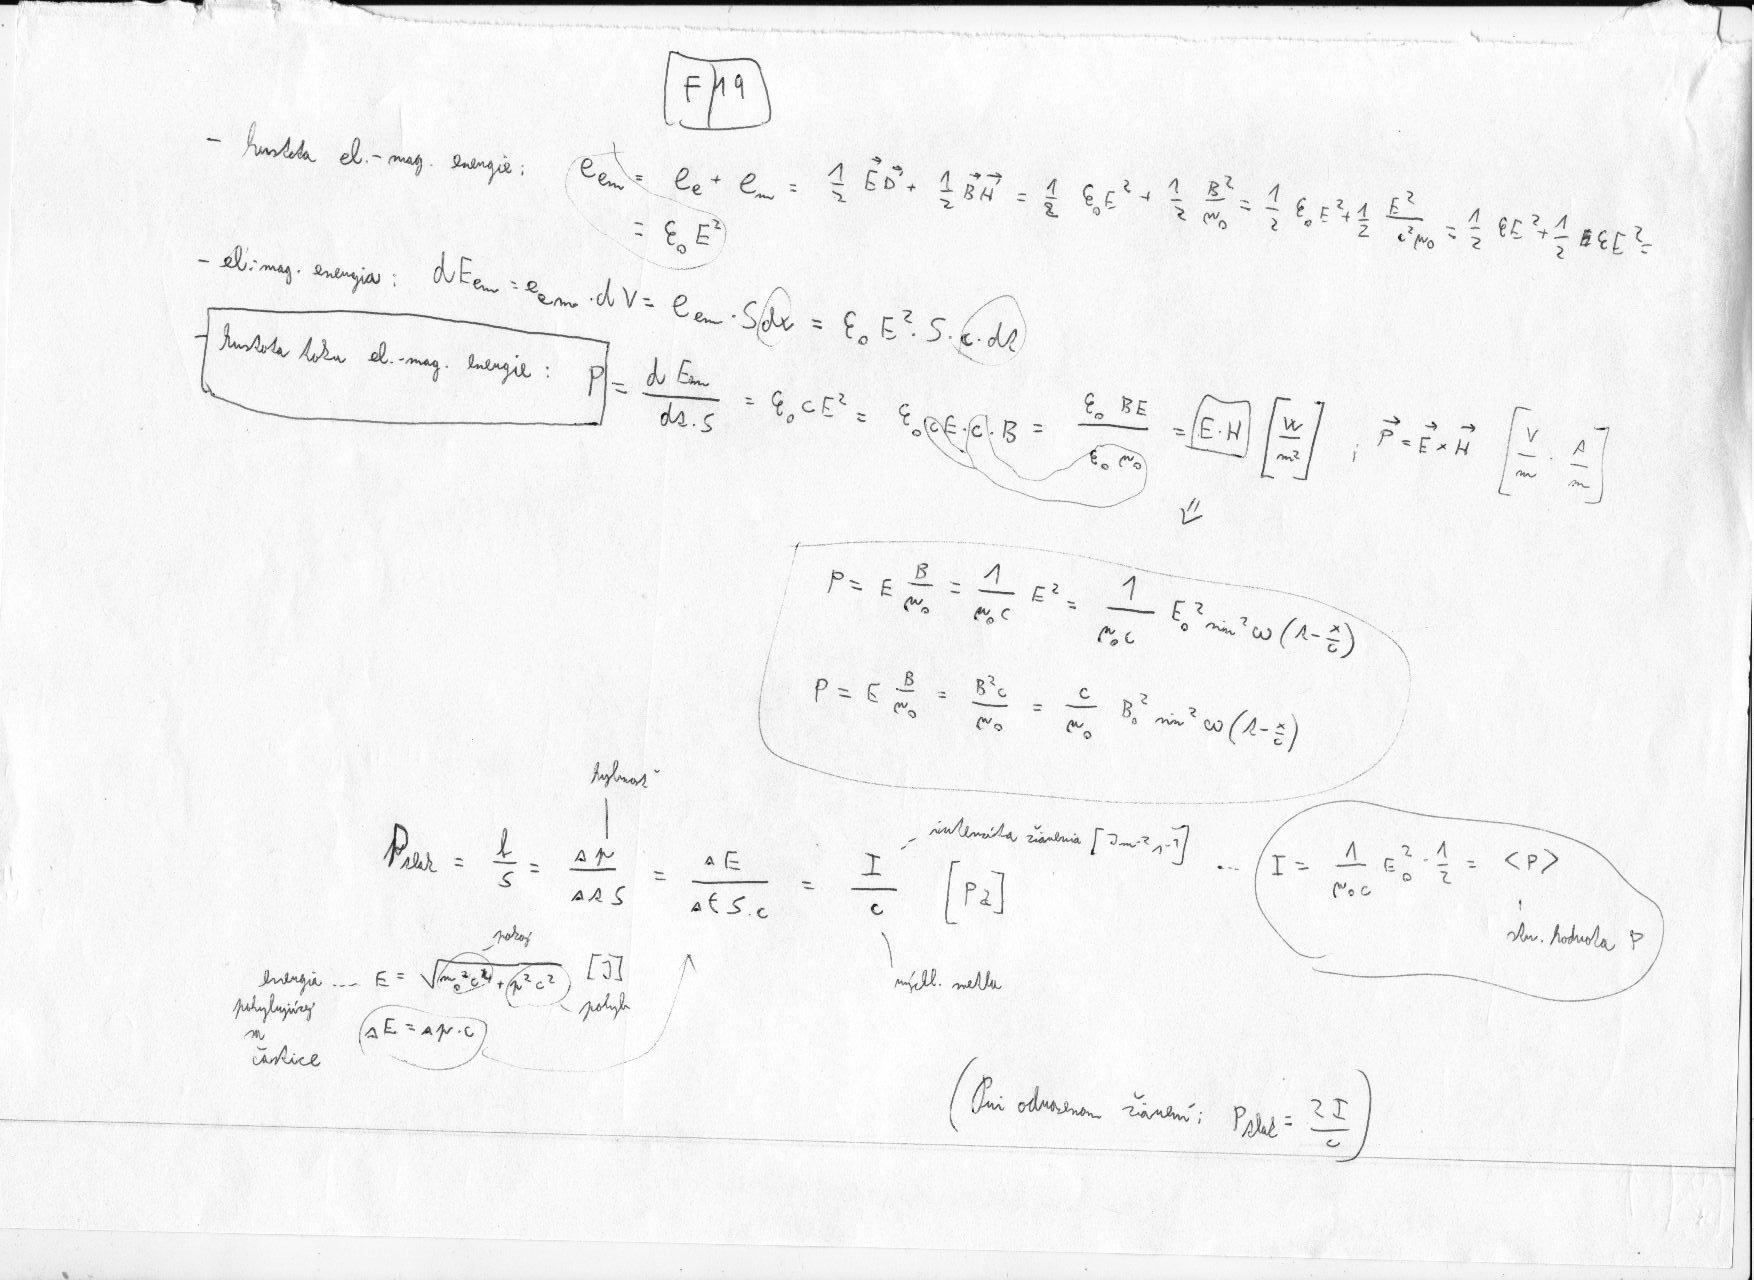 F 19
- hustota el.-mag. energie: e_em = e_e + e_m = 1/2 E⃗D⃗ + 1/2 B⃗H⃗ = 1/2 ε₀E² + 1/2 B²/μ₀ = 1/2 ε₀E² + 1/2 E²/(c²μ₀) = 1/2 εE² + 1/2 εE² =
= ε₀E²
- el.-mag. energia: dE_em = e_em · dV = e_em · S dx = ε₀E² · S · c · dt
- hustota toku el.-mag. energie: P = dE_em/(dt · S) = ε₀cE² = ε₀cE · c · B = ε₀BE/(ε₀μ₀) = E·H [W/m²] ; P⃗ = E⃗ × H⃗ [V/m · A/m]
⇓
P = E B/μ₀ = 1/(μ₀c) E² = 1/(μ₀c) E₀² sin² ω(t - x/c)
P = E B/μ₀ = B²c/μ₀ = c/μ₀ B₀² sin² ω(t - x/c)
hybnosť
P_tlak = f/S = Δp/(Δt S) = ΔE/(Δt S·c) = I/c [Pa]
intenzita žiarenia [Jm⁻²s⁻¹] ... I = 1/(μ₀c) E₀² · 1/2 = <P>
str. hodnota P
rýchl. svetla
pokoj
energia ... E = √(m₀²c⁴ + p²c²) [J]
pohybujúcej
sa
častice
pohyb
ΔE = Δp·c
(Pri odrazenom žiarení: P_tlak = 2I/c)